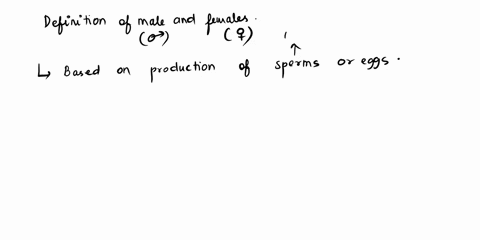 Definition of male and females.
(♂) (♀)
↳ Based on production of sperms or eggs.